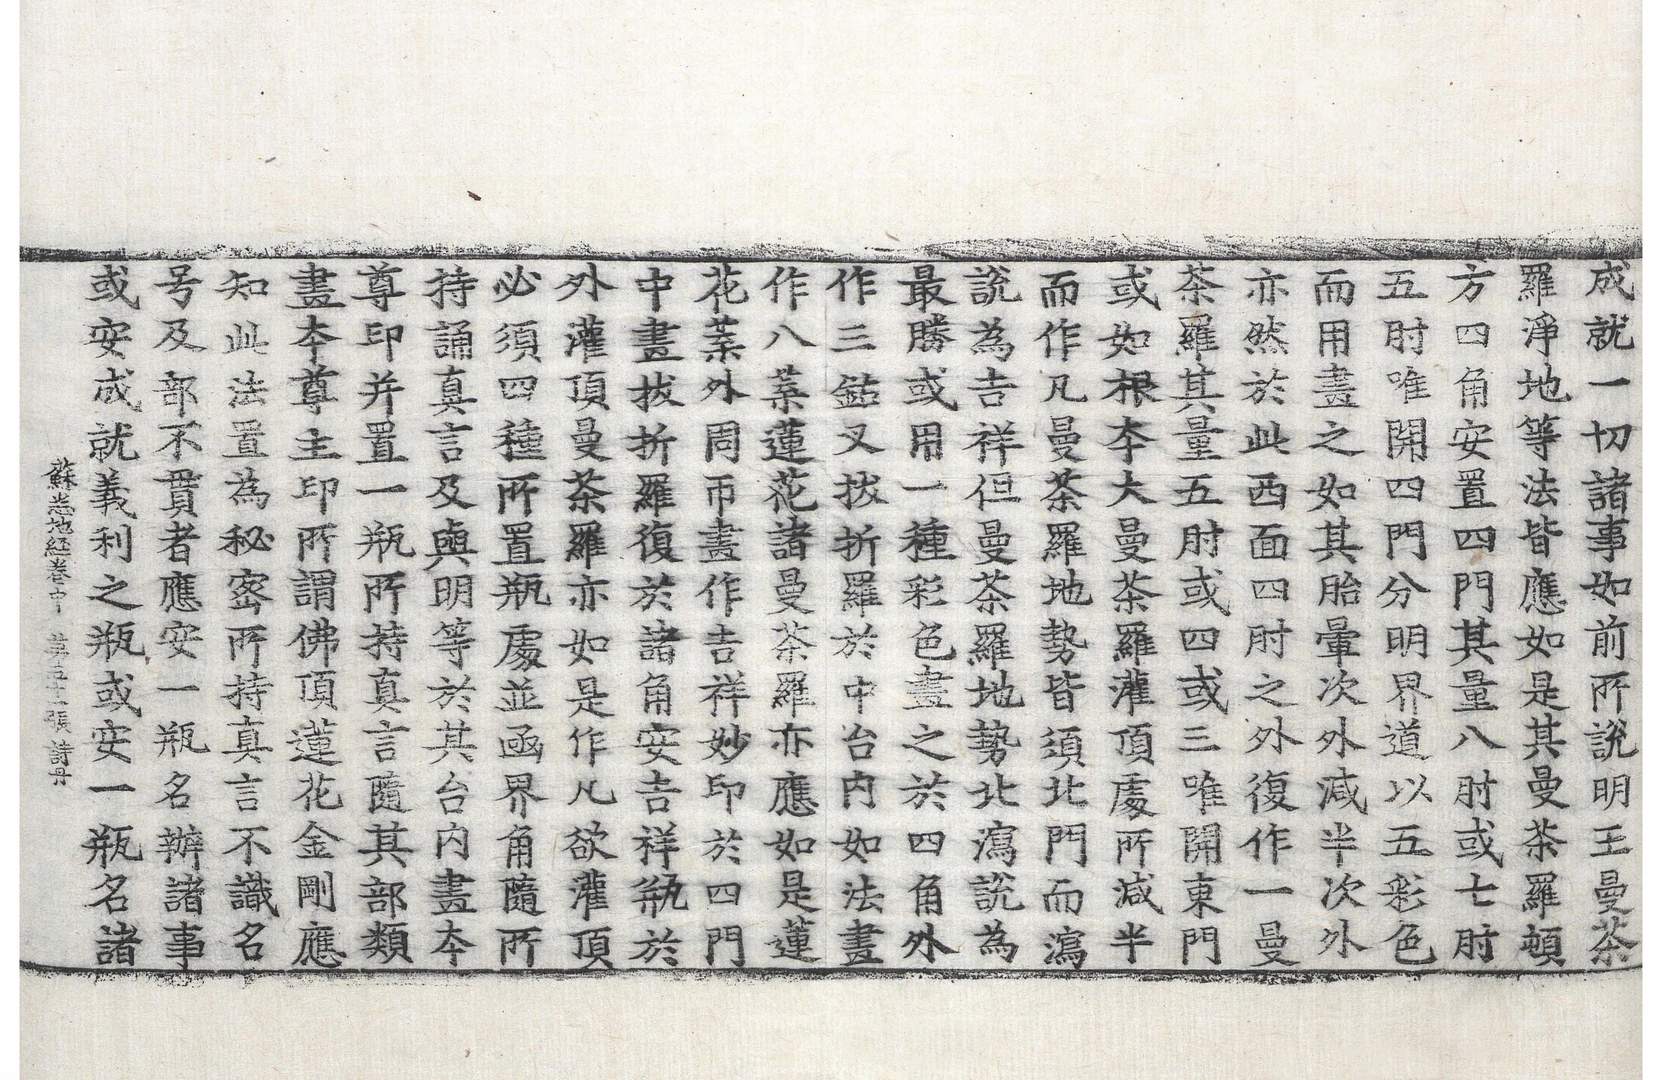 成就一切諸事如前所説明王曼荼
羅淨地等法皆應如是其曼荼羅頓
方四角安置四門其量八肘或七肘
五肘唯開四門分明界道以五彩色
而用畫之如其胎暈次外減半次外
亦然於此西面四肘之外復作一曼
荼羅其量五肘或四或三唯開東門
或如根夲大曼荼羅灌頂處所減半
而作凡曼荼羅地勢皆須北門而瀉
説為吉祥但曼荼羅地勢北瀉説為
最勝或用一種彩色畫之於四角外
作三鈷叉拔折羅於中台內如法畫
作八葉蓮花諸曼荼羅亦應如是蓮
花葉外周帀畫作吉祥妙印於四門
中畫拔折羅復於諸角安吉祥瓶於
外灌頂曼荼羅亦如是作凡欲灌頂
必須四種所置瓶處並凾界角隨所
持誦真言及與明等於其台內畫夲
尊印并置一瓶所持真言隨其部類
畫夲尊主印所謂佛頂蓮花金剛應
知此法置為秘密所持真言不識名
号及部不貫者應安一瓶名辦諸事
或安成就義利之瓶或安一瓶名諸
蘇悉地経卷中 第五十一張 詩丹